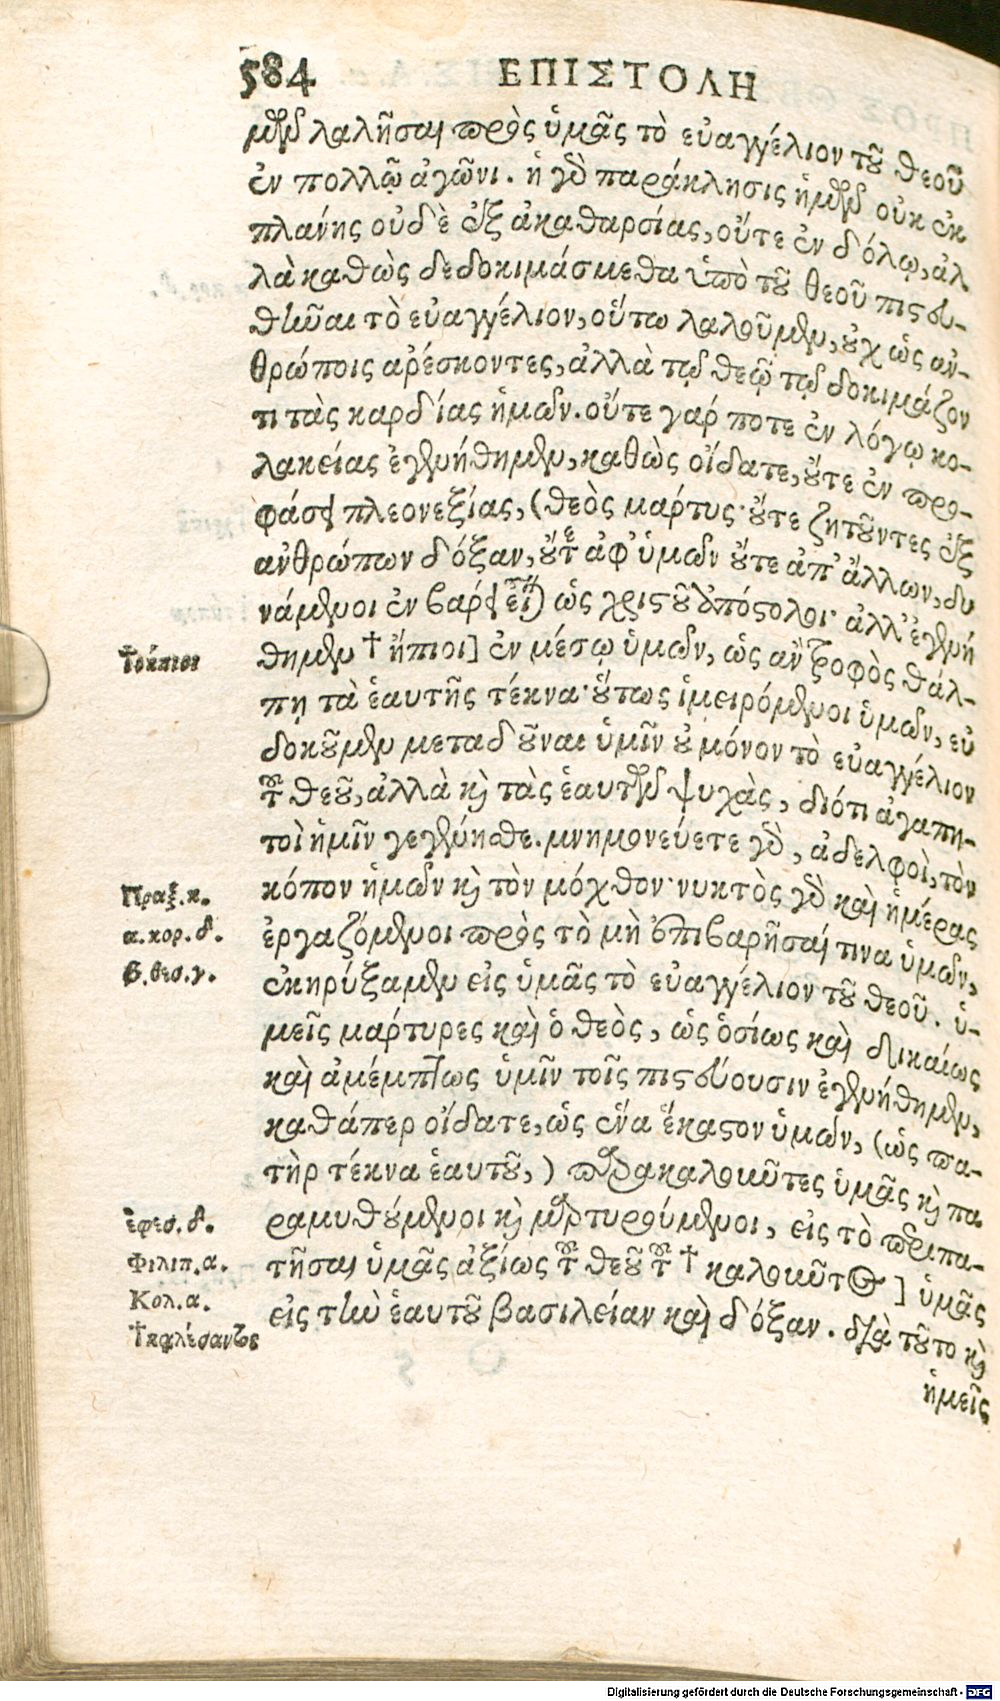 584 ΕΠΙΣΤΟΛΗ
μῶν λαλῆσαι πρὸς ὑμᾶς τὸ εὐαγγέλιον τοῦ θεοῦ
ἐν πολλῷ ἀγῶνι. ἡ γὰρ παράκλησις ἡμῶν οὐκ ἐκ
πλάνης οὐδὲ ἐξ ἀκαθαρσίας, οὔτε ἐν δόλῳ, ἀλ
λὰ καθὼς δεδοκιμάσμεθα ὑπὸ τοῦ θεοῦ πιστευ-
θῆναι τὸ εὐαγγέλιον, οὕτω λαλοῦμεν, οὐχ ὡς ἀν-
θρώποις ἀρέσκοντες, ἀλλὰ τῷ θεῷ τῷ δοκιμάζον
τι τὰς καρδίας ἡμῶν. οὔτε γάρ ποτε ἐν λόγῳ κο-
λακείας ἐγενήθημεν, καθὼς οἴδατε, οὔτε ἐν προ-
φάσει πλεονεξίας, (θεὸς μάρτυς· οὔτε ζητοῦντες ἐξ
ἀνθρώπων δόξαν, οὔτε ἀφ' ὑμῶν οὔτε ἀπ' ἄλλων, δυ
νάμενοι ἐν βάρει εἶναι) ὡς χριστοῦ ἀπόστολοι· ἀλλ' ἐγενή
θημεν † ἤπιοι] ἐν μέσῳ ὑμῶν, ὡς ἂν τροφὸς θάλ-
πῃ τὰ ἑαυτῆς τέκνα· οὕτως ἱμειρόμενοι ὑμῶν, εὐ
δοκοῦμεν μεταδοῦναι ὑμῖν οὐ μόνον τὸ εὐαγγέλιον
τοῦ θεοῦ, ἀλλὰ καὶ τὰς ἑαυτῶν ψυχὰς, διότι ἀγαπη-
τοὶ ἡμῖν γεγένησθε. μνημονεύετε γὰρ, ἀδελφοὶ, τὸν
κόπον ἡμῶν καὶ τὸν μόχθον· νυκτὸς γὰρ καὶ ἡμέρας
ἐργαζόμενοι πρὸς τὸ μὴ ἐπιβαρῆσαί τινα ὑμῶν,
ἐκηρύξαμεν εἰς ὑμᾶς τὸ εὐαγγέλιον τοῦ θεοῦ. ὑ-
μεῖς μάρτυρες καὶ ὁ θεὸς, ὡς ὁσίως καὶ δικαίως
καὶ ἀμέμπτως ὑμῖν τοῖς πιστεύουσιν ἐγενήθημεν,
καθάπερ οἴδατε, ὡς ἕνα ἕκαστον ὑμῶν, (ὡς πα-
τὴρ τέκνα ἑαυτοῦ,) παρακαλοῦντες ὑμᾶς καὶ πα
ραμυθούμενοι καὶ μαρτυρούμενοι, εἰς τὸ περιπα-
τῆσαι ὑμᾶς ἀξίως τοῦ θεοῦ τοῦ † καλοῦντος] ὑμᾶς
εἰς τὴν ἑαυτοῦ βασιλείαν καὶ δόξαν. διὰ τοῦτο καὶ
ἡμεῖς
Πραξ. κ.
α. κορ. δ.
β. θεσ. γ.
ἐφεσ. δ.
Φιλιπ. α.
Κολ. α.
†καλέσαντος
Digitalisierung gefördert durch die Deutsche Forschungsgemeinschaft - DFG